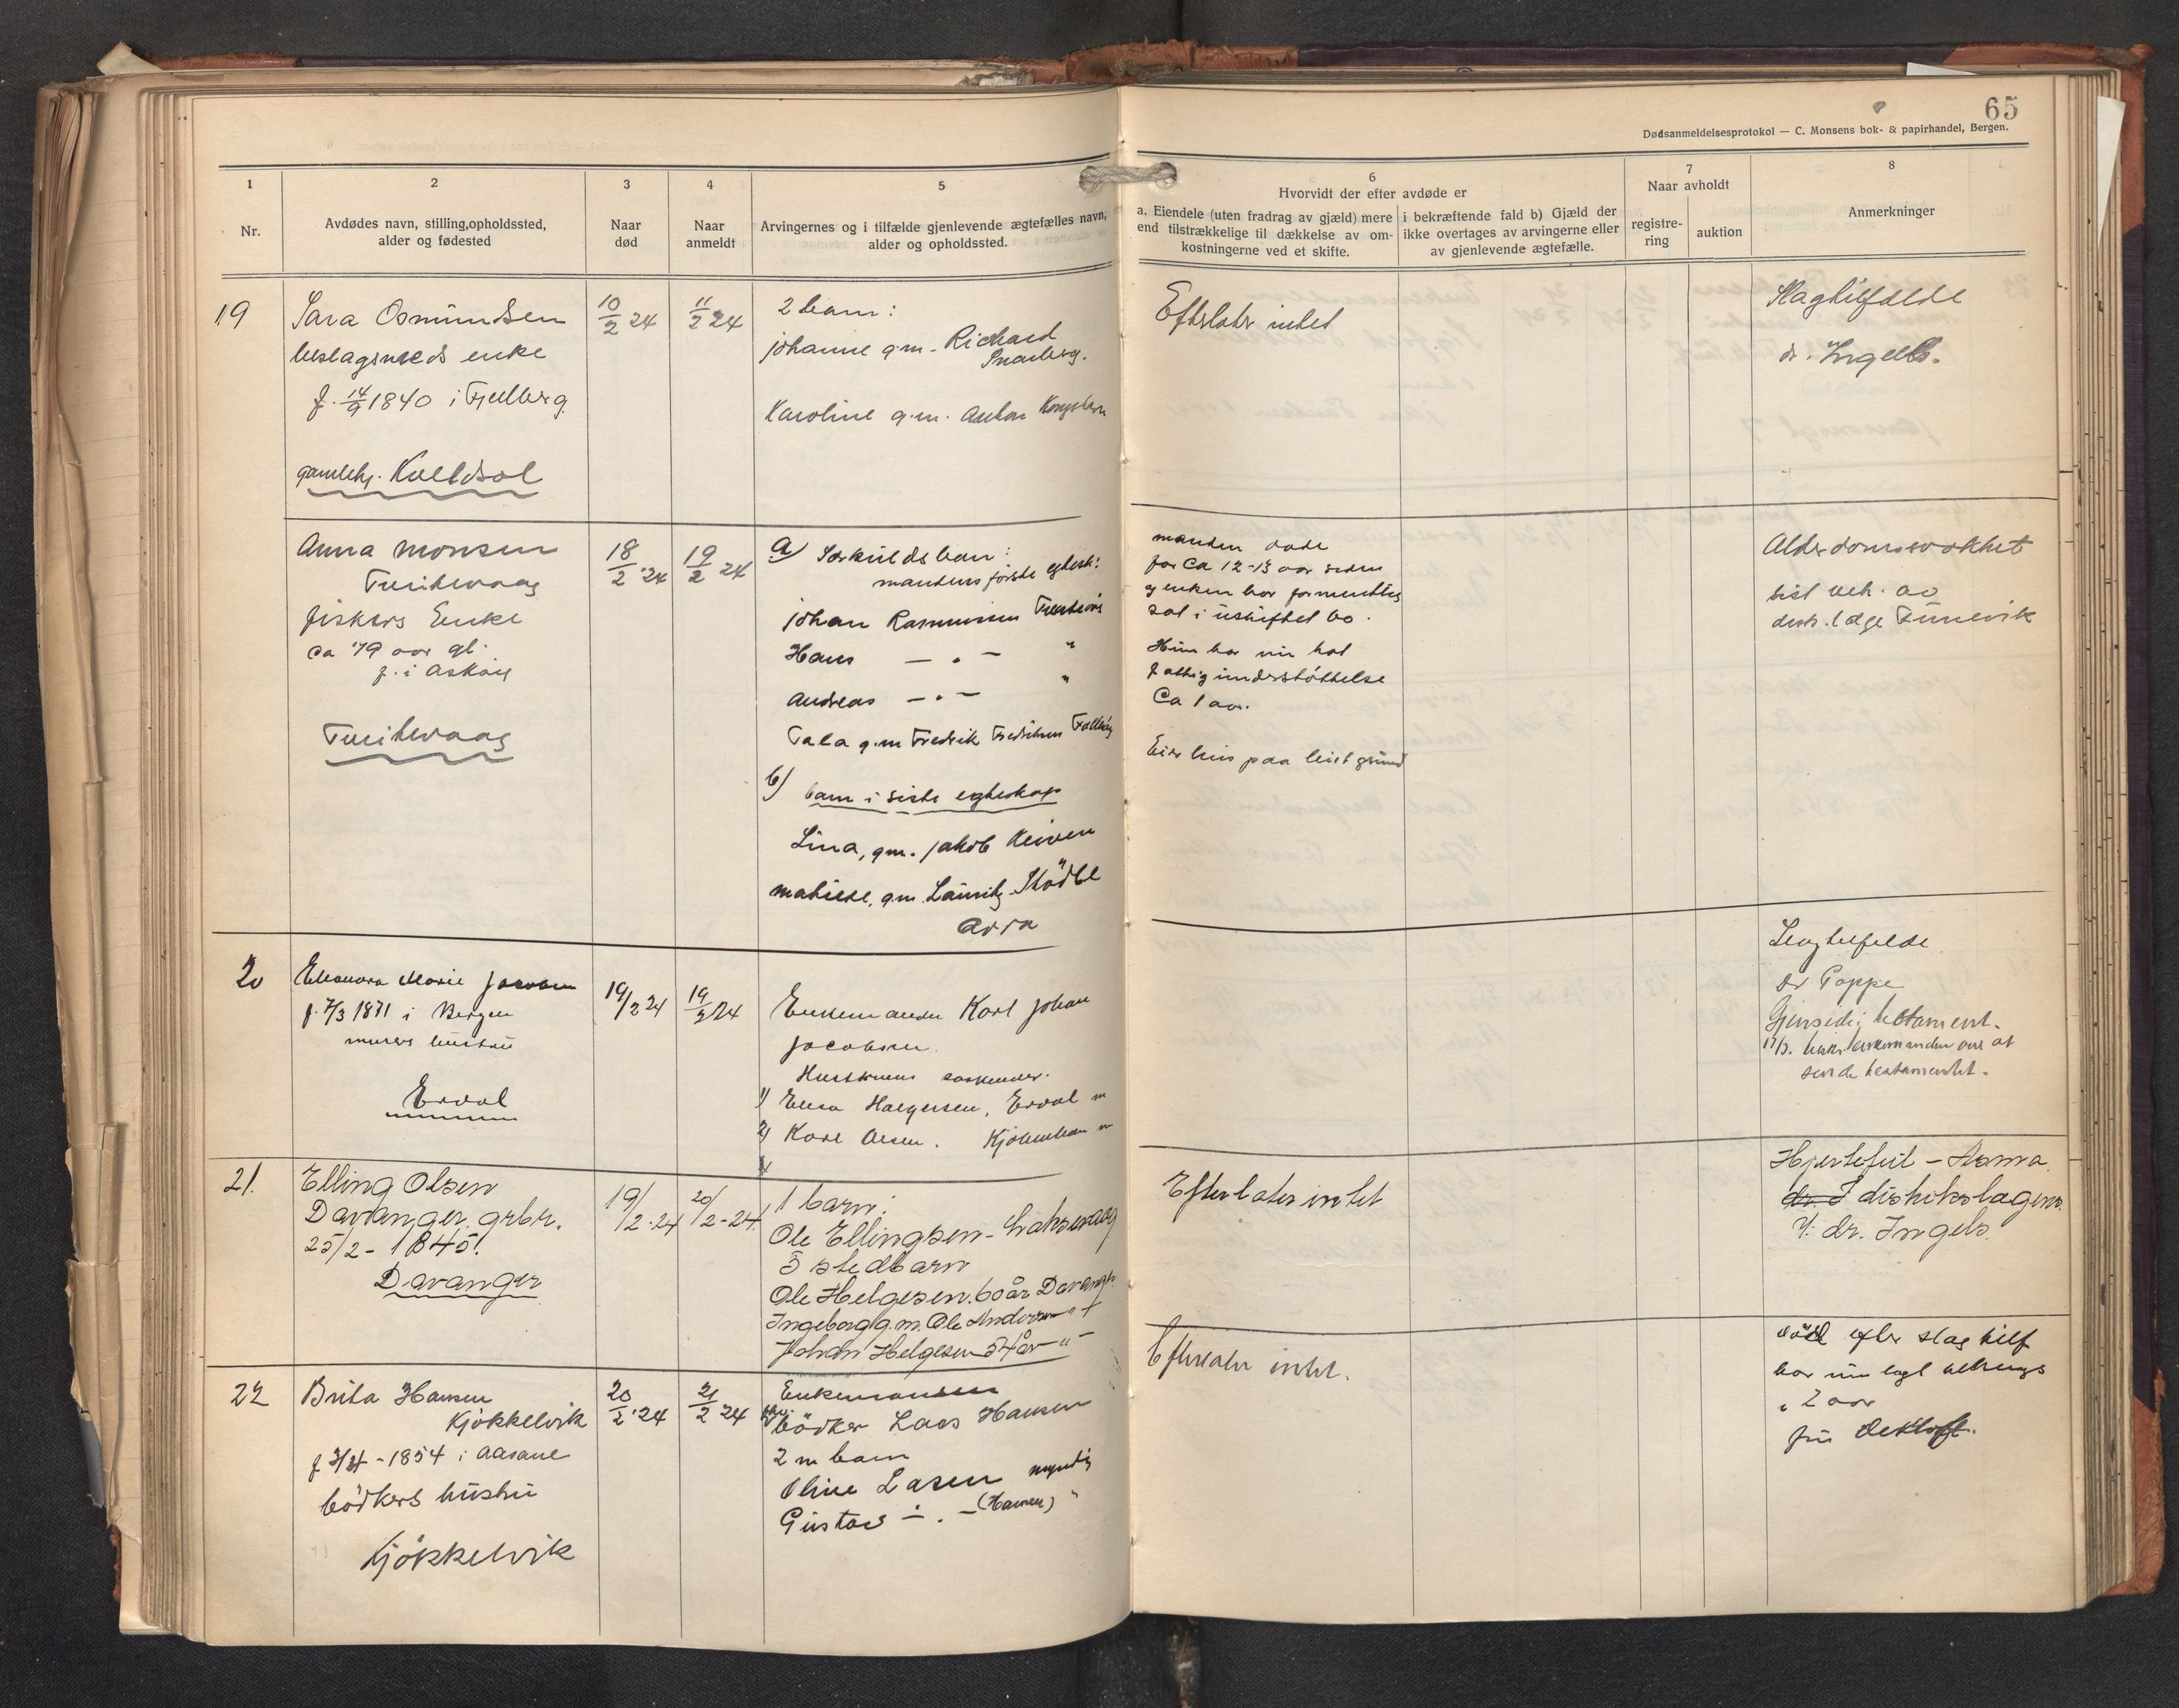 65
Dødsanmeldelsesprotokol — C. Monsens bok- & papirhandel, Bergen.
1
2
3
4
5
6
7
8
Nr.
Avdødes navn, stilling,opholdssted,
alder og fødested
Naar
død
Naar
anmeldt
Arvingernes og i tilfælde gjenlevende ægtefælles navn,
alder og opholdssted.
Hvorvidt der efter avdøde er
a. Eiendele (uten fradrag av gjæld) mere
end tilstrækkelige til dækkelse av om-
kostningerne ved et skifte.
i bekræftende fald b) Gjæld der
ikke overtages av arvingerne eller
av gjenlevende ægtefælle.
Naar avholdt
registre-
ring
auktion
Anmerkninger
19
Sara Osmundsen
beslagsmeds enke
f. 14/9 1840 i Fjelberg
gamlehj. Kveldsol
10/2 24
11/2 24
2 barn:
Johanne g.m. Richard
Karoline g.m. Anton
Efterlater intet
Slagtilfælde
dr. Ingells.
Anna Monsen
fiskers Enke
ca 79 aar gl.
f. i Askøy
18/2 24
19/2 24
a) Særkuldsbarn:
mandens første egtesk:
Johan Rasmussen
Hans — " — "
Andreas — " — "
Tala g.m. Fredrik Fredriksen
b) barn i siste egteskap
Lina, g.m. Jakob
g.m. Lauritz
manden døde
for ca 12-13 aar siden
og enken har formentlig
sat i uskiftet bo.
Hun har nu hat
fattigunderstøttelse
Ca 1 aar.
Eier hus paa leiet grund
Alderdomssvakhet
sist beh. av
20
Eleonora Marie Jacobsen
f. 7/3 1871 i Bergen
murers hustru
Ervol
19/2 24
19/2 24
Enkemanden Karl Johan
Jacobsen.
Hustruens søskender.
1) Elisa Halgersen, Ervol m
2) Karl Olsen. Kjøbenhavn m
Slagtilfelde
dr Poppe
Gjensidig testament.
sende testamentet.
21.
Elling Olsen
Davanger. grbr.
25/2 - 1845!
Davanger
19/2-24
20/2-24
1 barn:
Ole Ellingsen - Laksevaag
3 stedbarn
Ole Helgesen. 60 år Davanger
Ingeborg g.m. Ole Andersen " +
Johan Helgesen 54 år — " —
Efterlater intet
Hjertefeil - Astma.
dr. Ingels.
22
Brita Hansen
Kjøkkelvik
1854 i Aasane
bødkers hustru
Kjøkkelvik
20/2 24
21/2 24
Enkemanden
bødker Lars Hansen
2 m barn
Oline Larsen myndig
Gustav — . — (Hansen) "
Efterlater intet.
død efter slagtilf
har nu lagt tilsengs
i 2 aar